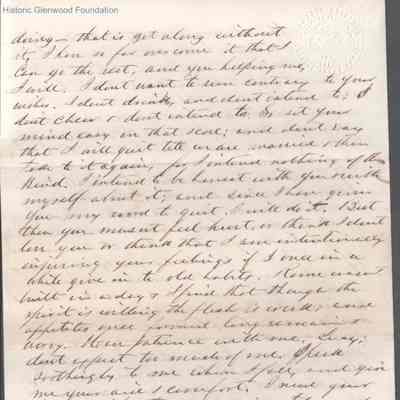 Historic Glenwood Foundation
doing – that is get along without
it, I have so far overcome it that I
can go the rest, and you helping me,
I will. I dont want to run contrary to your
wishes. I dont drink, and dont intend to; I
dont chew & dont intend to. So set your
mind easy on that score; and dont say
that I will quit till we are married & then
take to it again, for I intend nothing of the
kind. I intend to be honest with you
myself about it; and since I have given
you my word to quit, I will do it. But
then you musent feel hurt, or think I dont
love you or think that I am intentionally
injuring your feelings if I once in a
while give in to old habits. Rome wasnt
built in a day & I find that though the
spirit is willing the flesh is weak, and
appetites once formed long remain to
worry. Have patience with me,
dont expect too much of me. Speak
soothingly to me when I fall, and give
me your aid & comfort. I need your